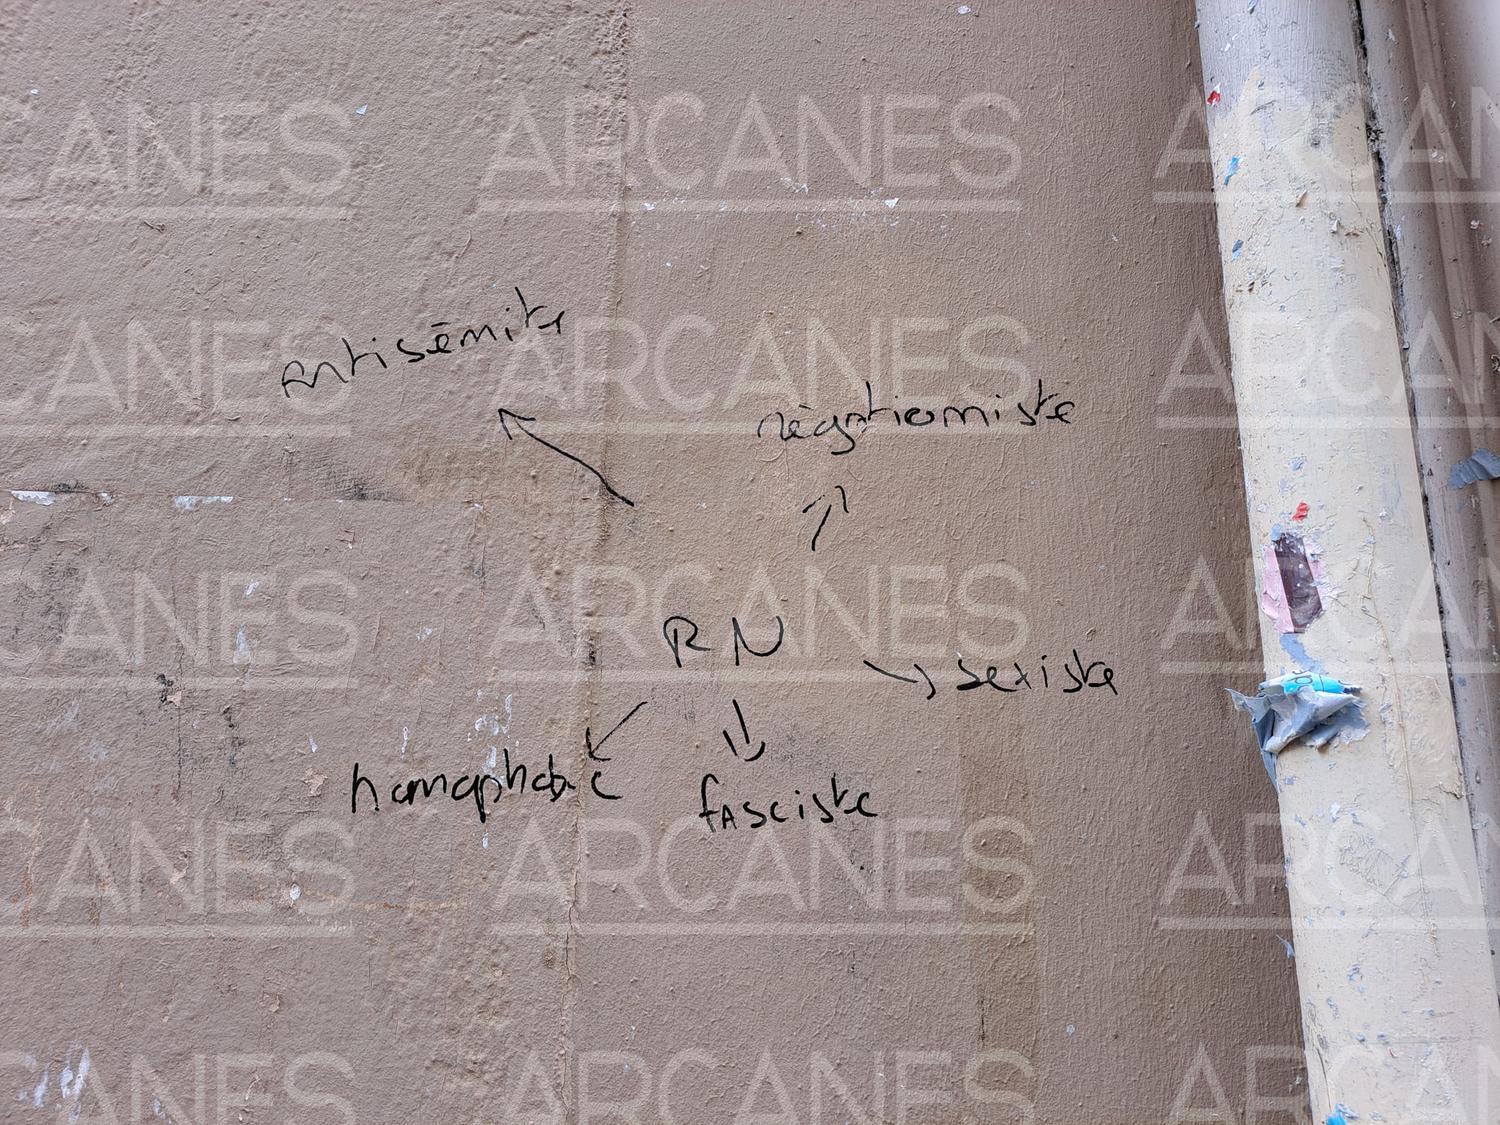 antisémite
négationniste
RN
sexiste
homophobe
fasciste
ARCANES